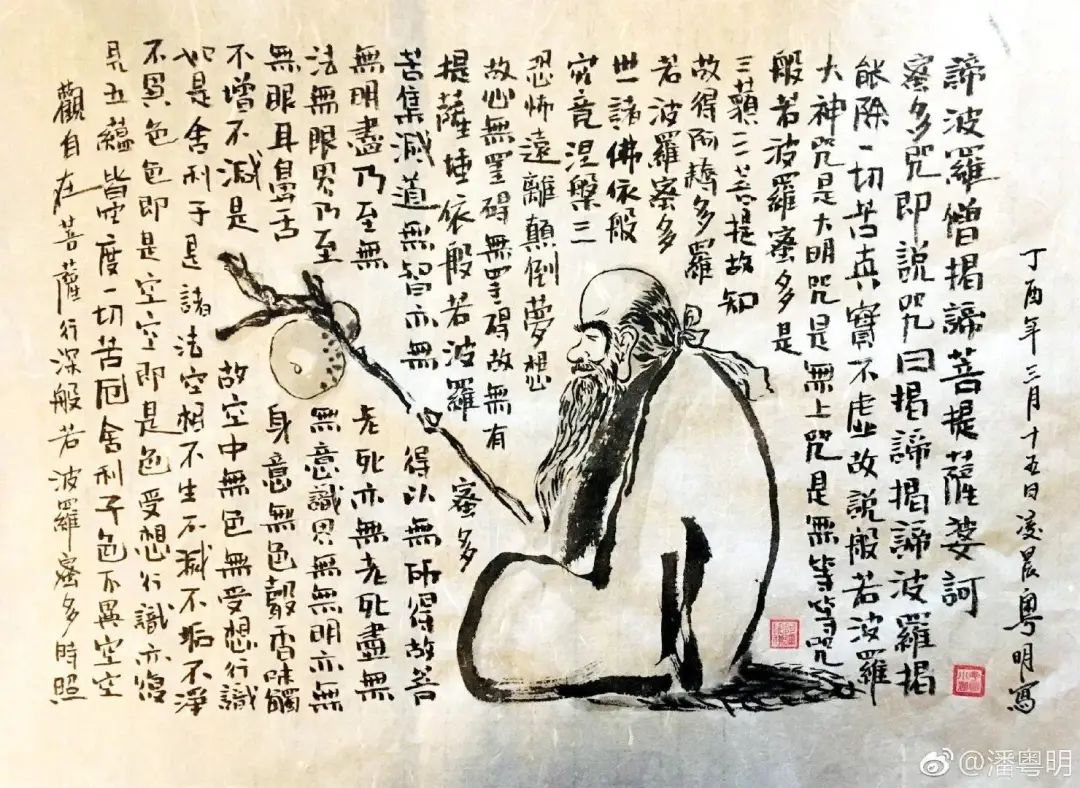 觀自在菩薩行深般若波羅蜜多時照
見五蘊皆空度一切苦厄舍利子色不異空空
不異色色即是空空即是色受想行識亦復
如是舍利子是諸法空相不生不滅不垢不淨
不增不減是故空中無色無受想行識
無眼耳鼻舌身意無色聲香味觸
法無眼界乃至無意識界無無明亦無
無明盡乃至無老死亦無老死盡無
苦集滅道無智亦無得以無所得故菩
提薩埵依般若波羅蜜多
故心無罣礙無罣礙故無有
恐怖遠離顛倒夢想
究竟涅槃三
世諸佛依般
若波羅蜜多
故得阿耨多羅
三藐三菩提故知
般若波羅蜜多是
大神咒是大明咒是無上咒是無等等咒
能除一切苦真實不虛故說般若波羅
蜜多咒即說咒曰揭諦揭諦波羅揭
諦波羅僧揭諦菩提薩婆訶
丁酉年三月十五日凌晨粤明寫
@潘粤明